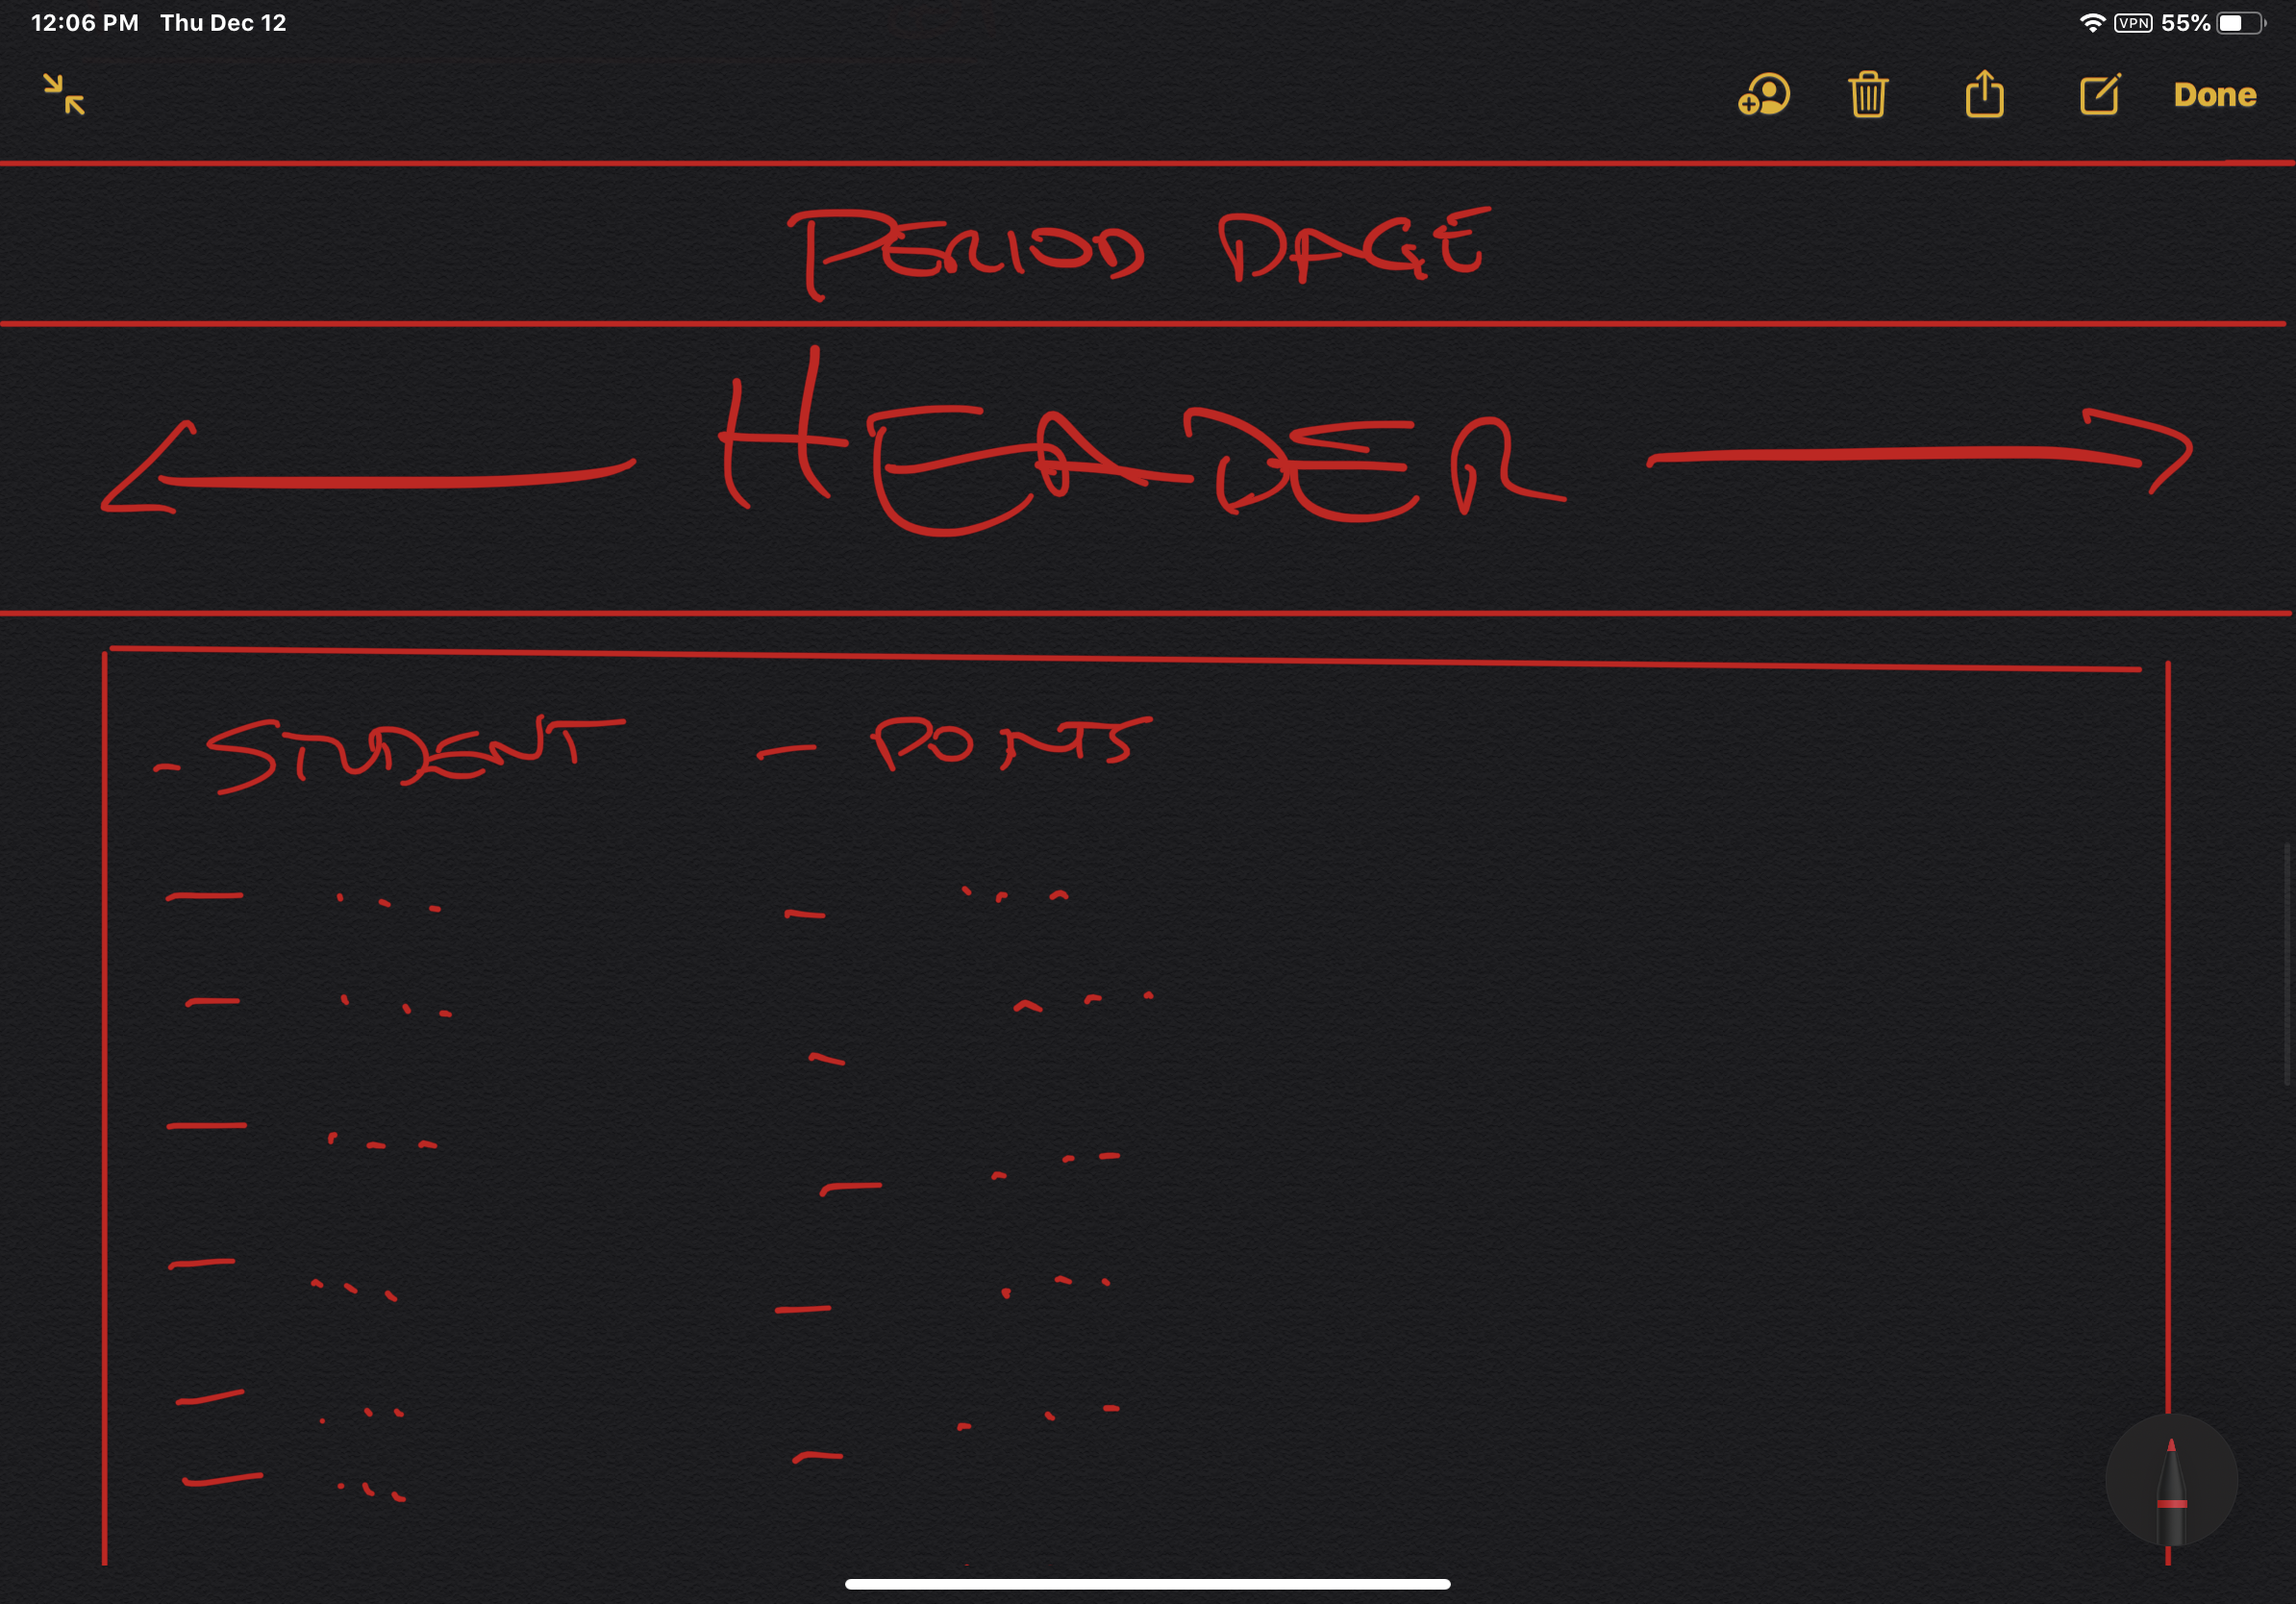 12:06 PM Thu Dec 12 VPN 55%
Done
PERIOD PAGE
HEADER
- STUDENT - POINTS